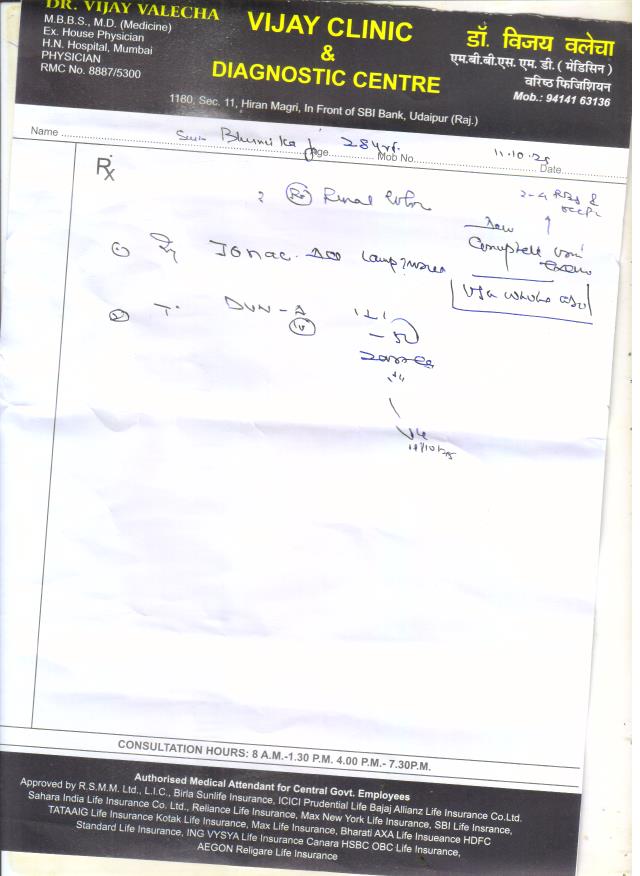 DR. VIJAY VALECHA
M.B.B.S., M.D. (Medicine)
Ex. House Physician
H.N. Hospital, Mumbai
PHYSICIAN
RMC No. 8887/5300
VIJAY CLINIC
&
DIAGNOSTIC CENTRE
डॉ. विजय वलेचा
एम.बी.बी.एस. एम. डी. ( मेडिसिन )
वरिष्ठ फिजिशियन
Mob.: 94141 63136
1180, Sec. 11, Hiran Magri, In Front of SBI Bank, Udaipur (Raj.)
Name Bhumika Age 28 yrs. Mob No. Date 11.10.25
Rx
? (Rt) Renal
2-4 RBS &
Complete
USG whole abd
① Jonac
② T. DVN - A
CONSULTATION HOURS: 8 A.M.-1.30 P.M. 4.00 P.M.- 7.30P.M.
Authorised Medical Attendant for Central Govt. Employees
Approved by R.S.M.M. Ltd., L.I.C., Birla Sunlife Insurance, ICICI Prudential Life Bajaj Allianz Life Insurance Co.Ltd.
Sahara India Life Insurance Co. Ltd., Reliance Life Insurance, Max New York Life Insurance, SBI Life Insrance,
TATAAIG Life Insurance Kotak Life Insurance, Max Life Insurance, Bharati AXA Life Insueance HDFC
Standard Life Insurance, ING VYSYA Life Insurance Canara HSBC OBC Life Insurance,
AEGON Religare Life Insurance